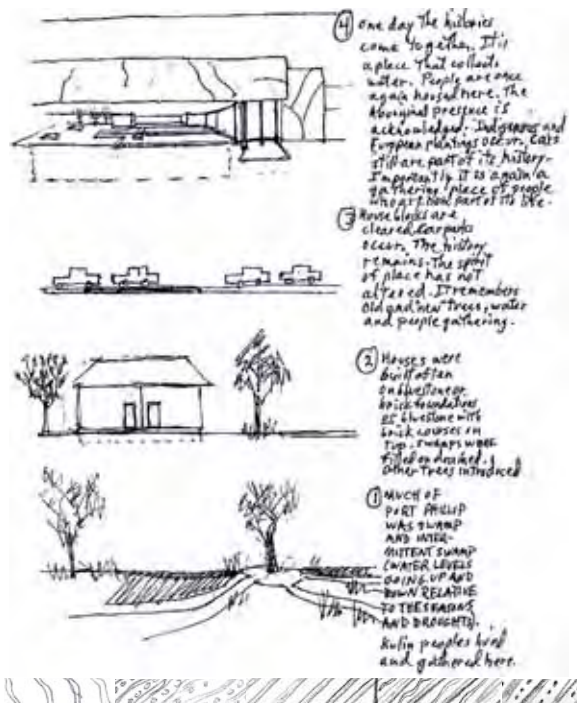 ④ one day the histories
come together. It is
a place that collects
water. People are once
again housed here. The
Aboriginal presence is
acknowledged. Indigenous and
European plantings occur. Cars
still are part of its history.
Importantly it is again a
gathering place of people
who are now part of its life.
③ House blocks are
cleared. Carparks
occur. The history
remains. The spirit
of place has not
altered. It remembers
old and new trees, water
and people gathering.
② Houses were
built often
on bluestone or
brick foundations
or bluestone with
brick courses on
top. Swamps were
filled or drained. &
other trees introduced
① MUCH OF
PORT PHILLIP
WAS SWAMP
AND INTER-
MITTENT SWAMP
(WATER LEVELS
GOING UP AND
DOWN RELATIVE
TO THE SEASONS
AND DROUGHTS).
Kulin peoples lived
and gathered here.